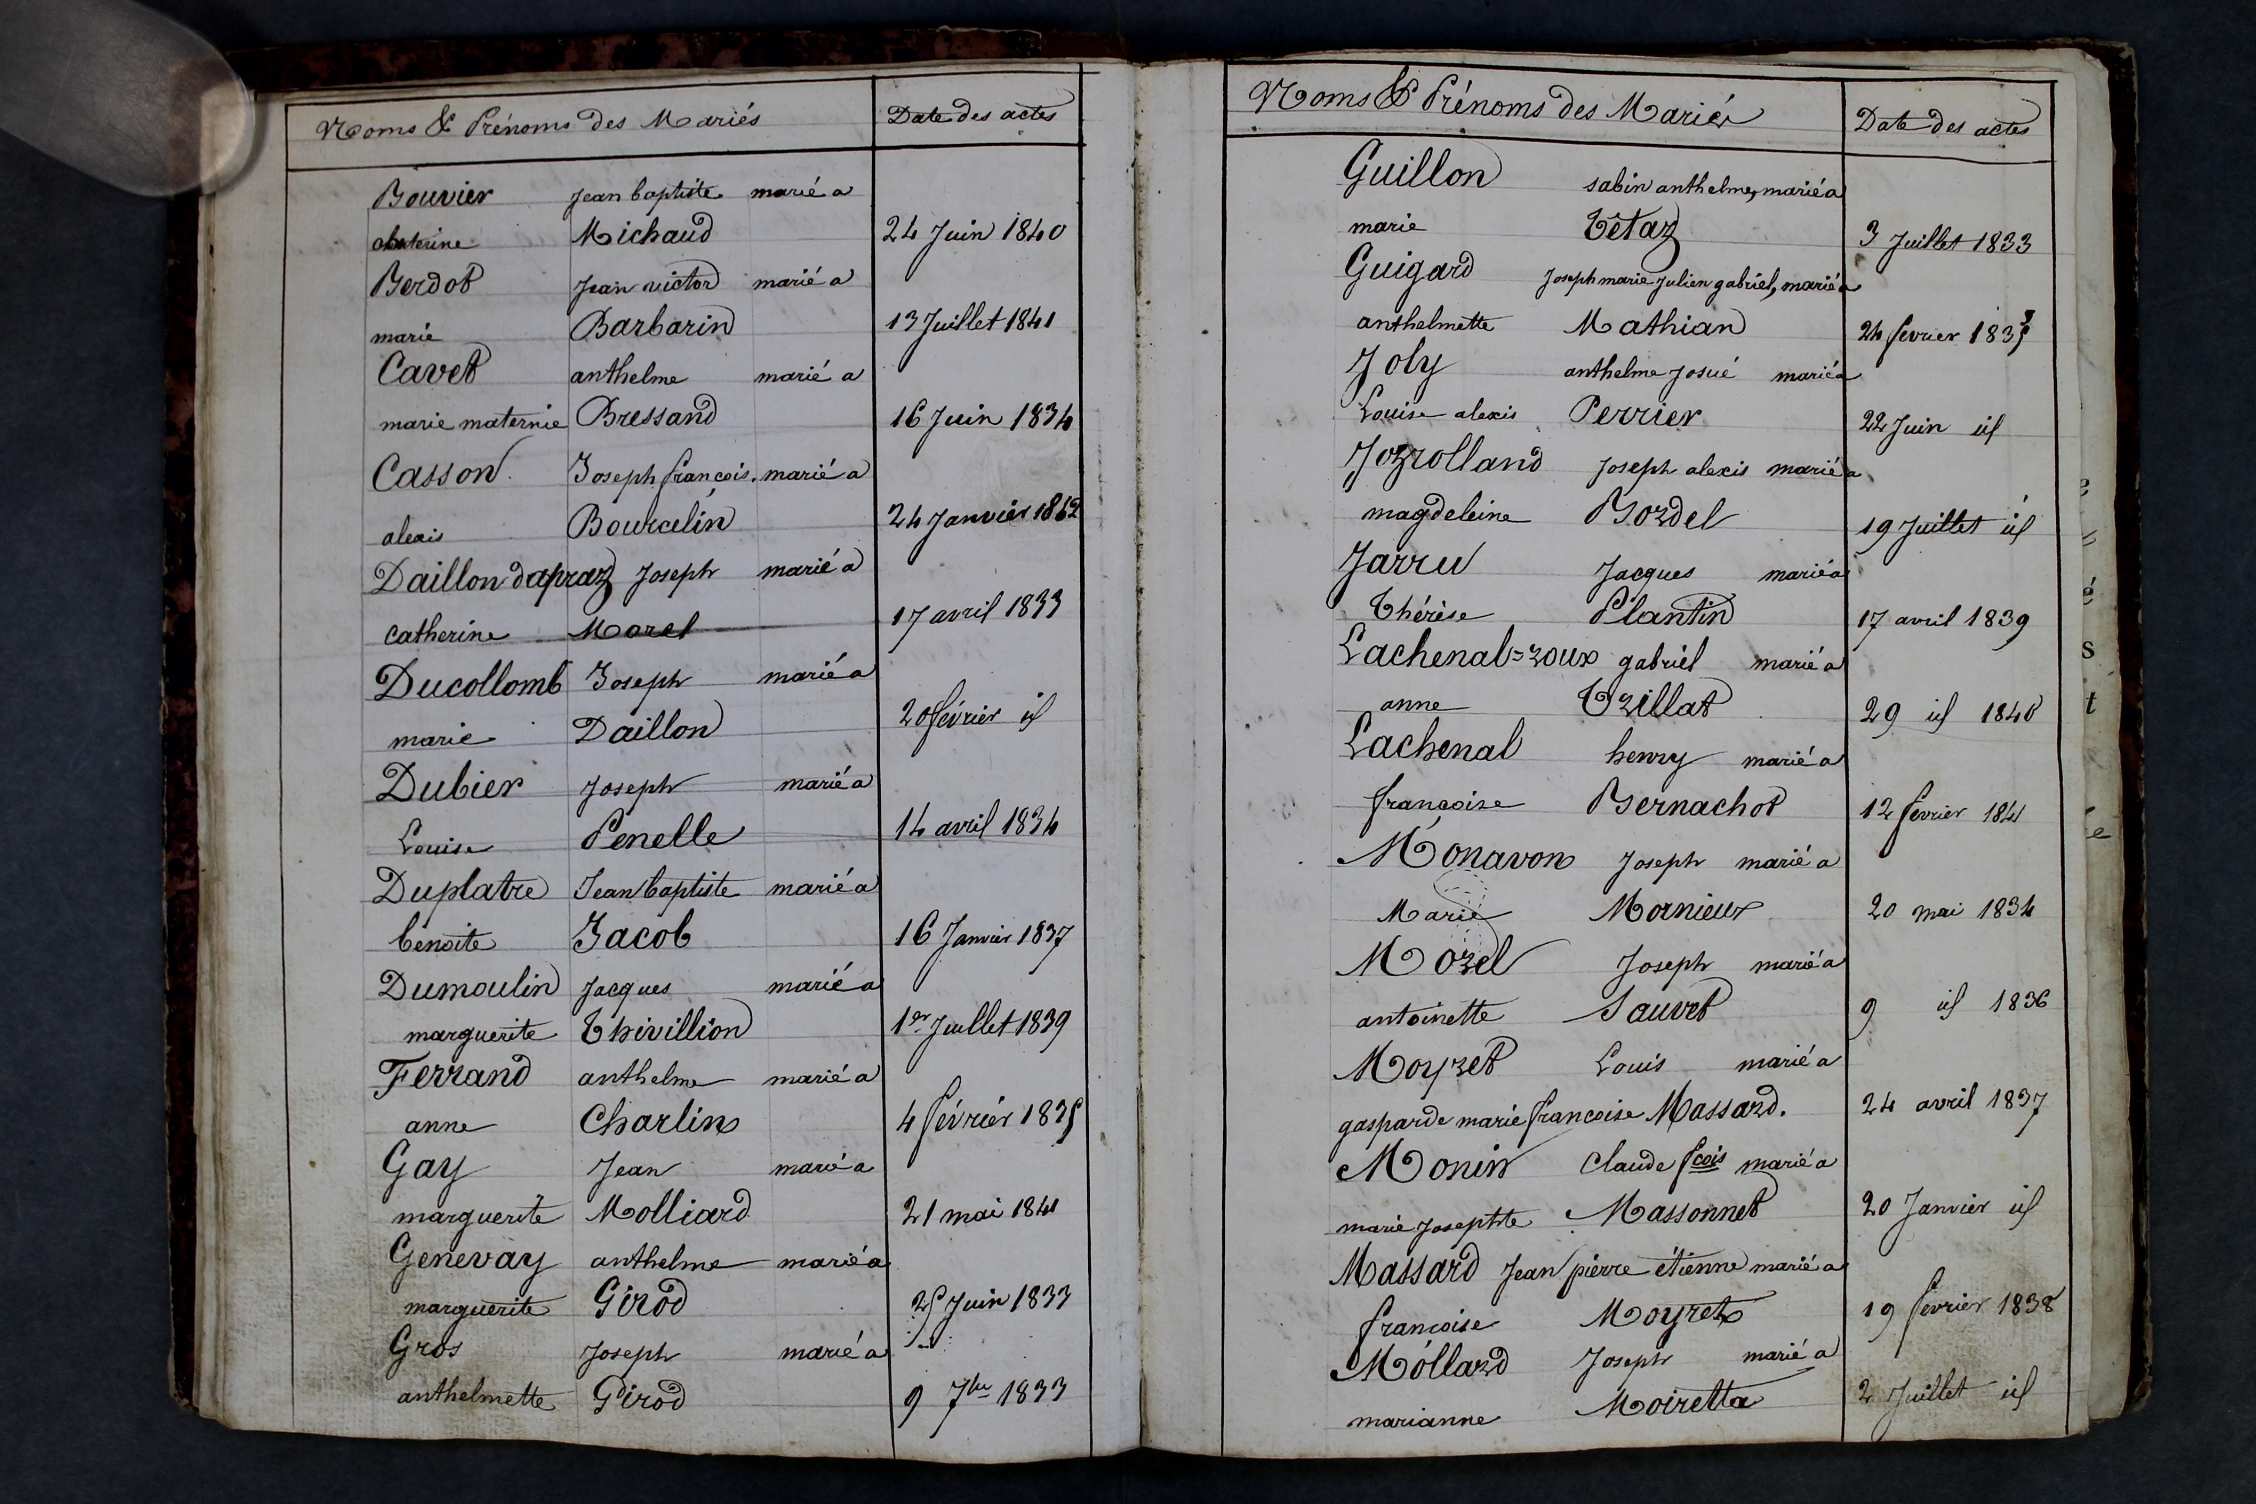 Noms & Prénoms des Mariés Date des actes
Bouvier Jean baptiste marié a
Michaud 24 Juin 1840
Berdot Jean victor marié a
marie Barbarin 13 Juillet 1841
Cavet anthelme marié a
marie maternie Bressand 16 Juin 1834
Casson Joseph françois. marié a
alexis Bourcelin 24 Janvier 1842
Daillon dapraz Joseph marié a
catherine Morel 17 avril 1833
Ducollomb Joseph marié a
marie Daillon 20 février id
Dubier Joseph marié a
Louise Penelle 14 avril 1834
Duplatre Jean baptiste marié a
benoite Jacob 16 Janvier 1837
Dumoulin Jacques marié a
marguerite Thivillion 1er Juillet 1839
Ferrand anthelme marié a
anne Charlin 4 février 1835
Gay Jean marié a
marguerite Molliard 21 mai 1841
Genevay anthelme marié a
marguerite Girod 25 Juin 1833
Gros Joseph marié a
anthelmette Girod 9 7bre 1833
Noms & Prénoms des Mariés Date des actes
Guillon sabin anthelme, marié a
marie Tétaz 3 Juillet 1833
Guigard Joseph marie Julien gabriel, marié a
anthelmette Mathian 24 fevrier
Joly anthelme Josué marié a
Louise alexis Perrier 22 Juin id
Jozrolland Joseph alexis marié a
magdeleine Bordel 19 Juillet id
Jarru Jacques marié a
Thérèse Plantin 17 avril 1839
Lachenal=roux gabriel marié a
anne Trillat 29 id 1840
Lachenal henry marié a
françoise Bernachot 12 fevrier 1841
Monavon Joseph marié a
Marie Mornieux 20 mai 1834
Morel Joseph marié a
antoinette Sauvet 9 id 1836
Moyret Louis marié a
gasparde marie francoise Massard. 24 avril 1837
Monin Claude fcois marié a
marie Josephte Massonnet 20 Janvier id
Massard Jean pierre étienne marié a
francoise Moyret 19 fevrier 1838
Mollard Joseph marié a
marianne Moiretta 2 Juillet id